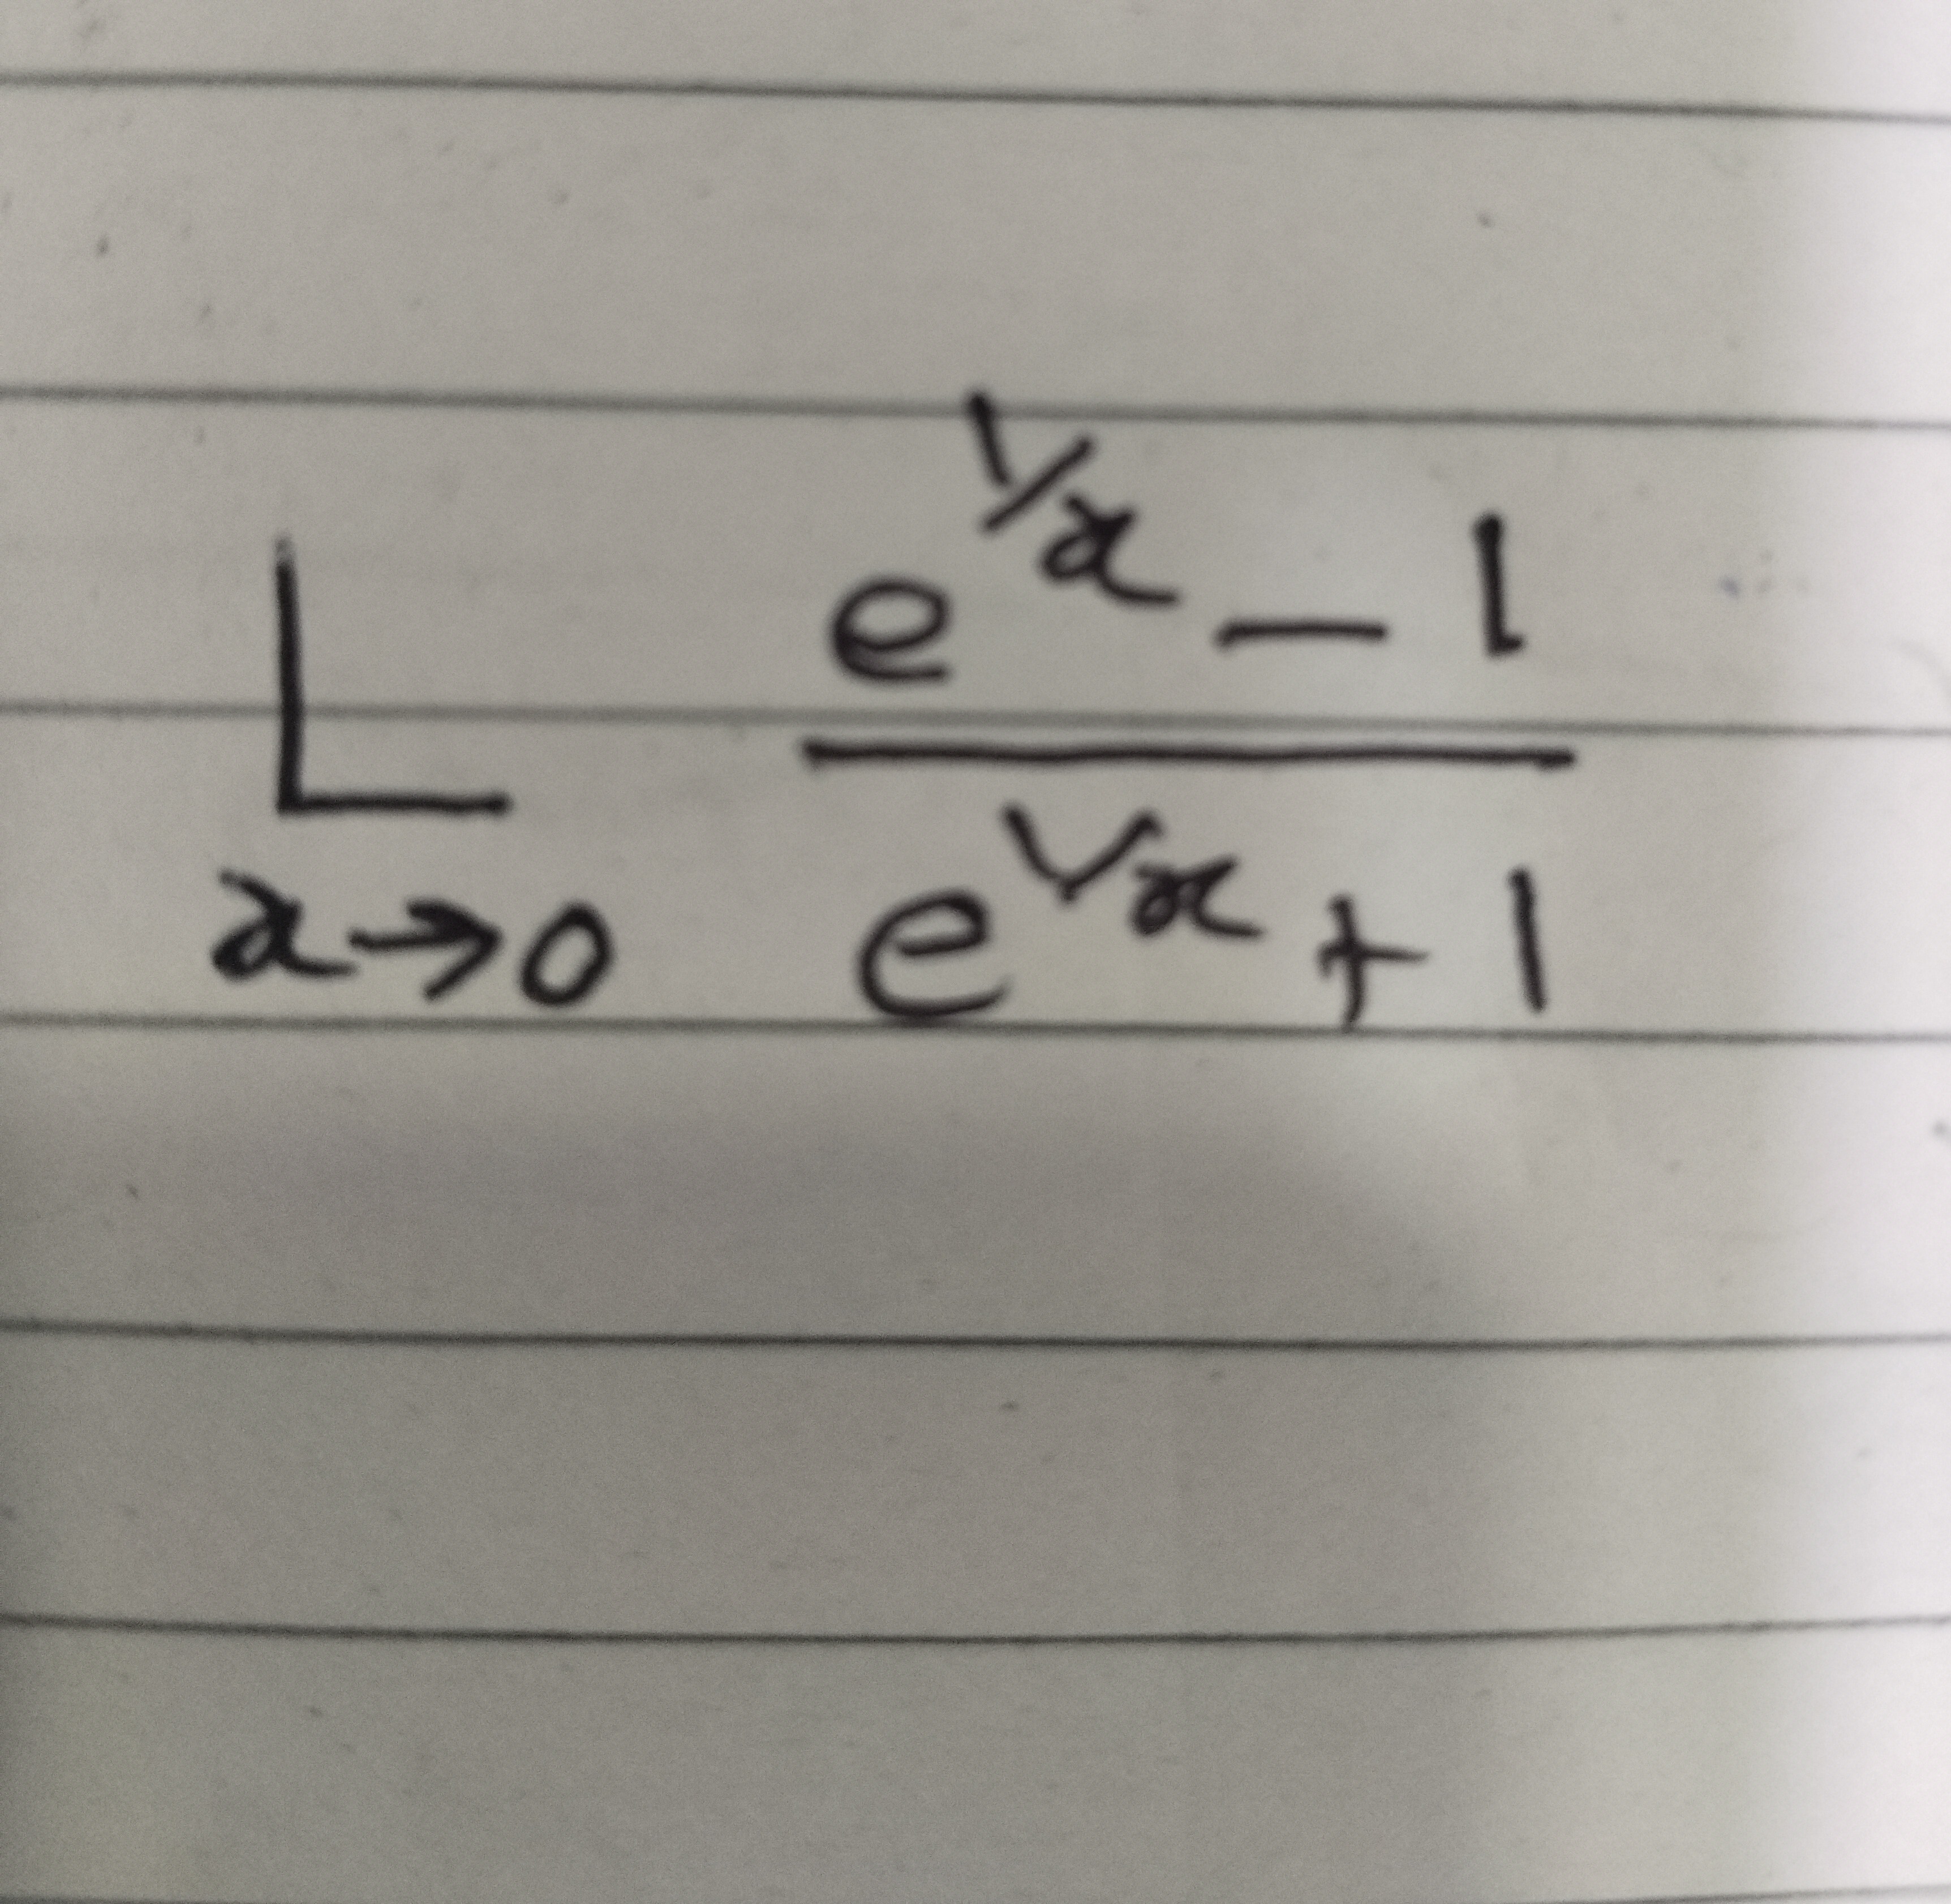 L
x→0
e^{1/x} - 1
e^{1/x} + 1